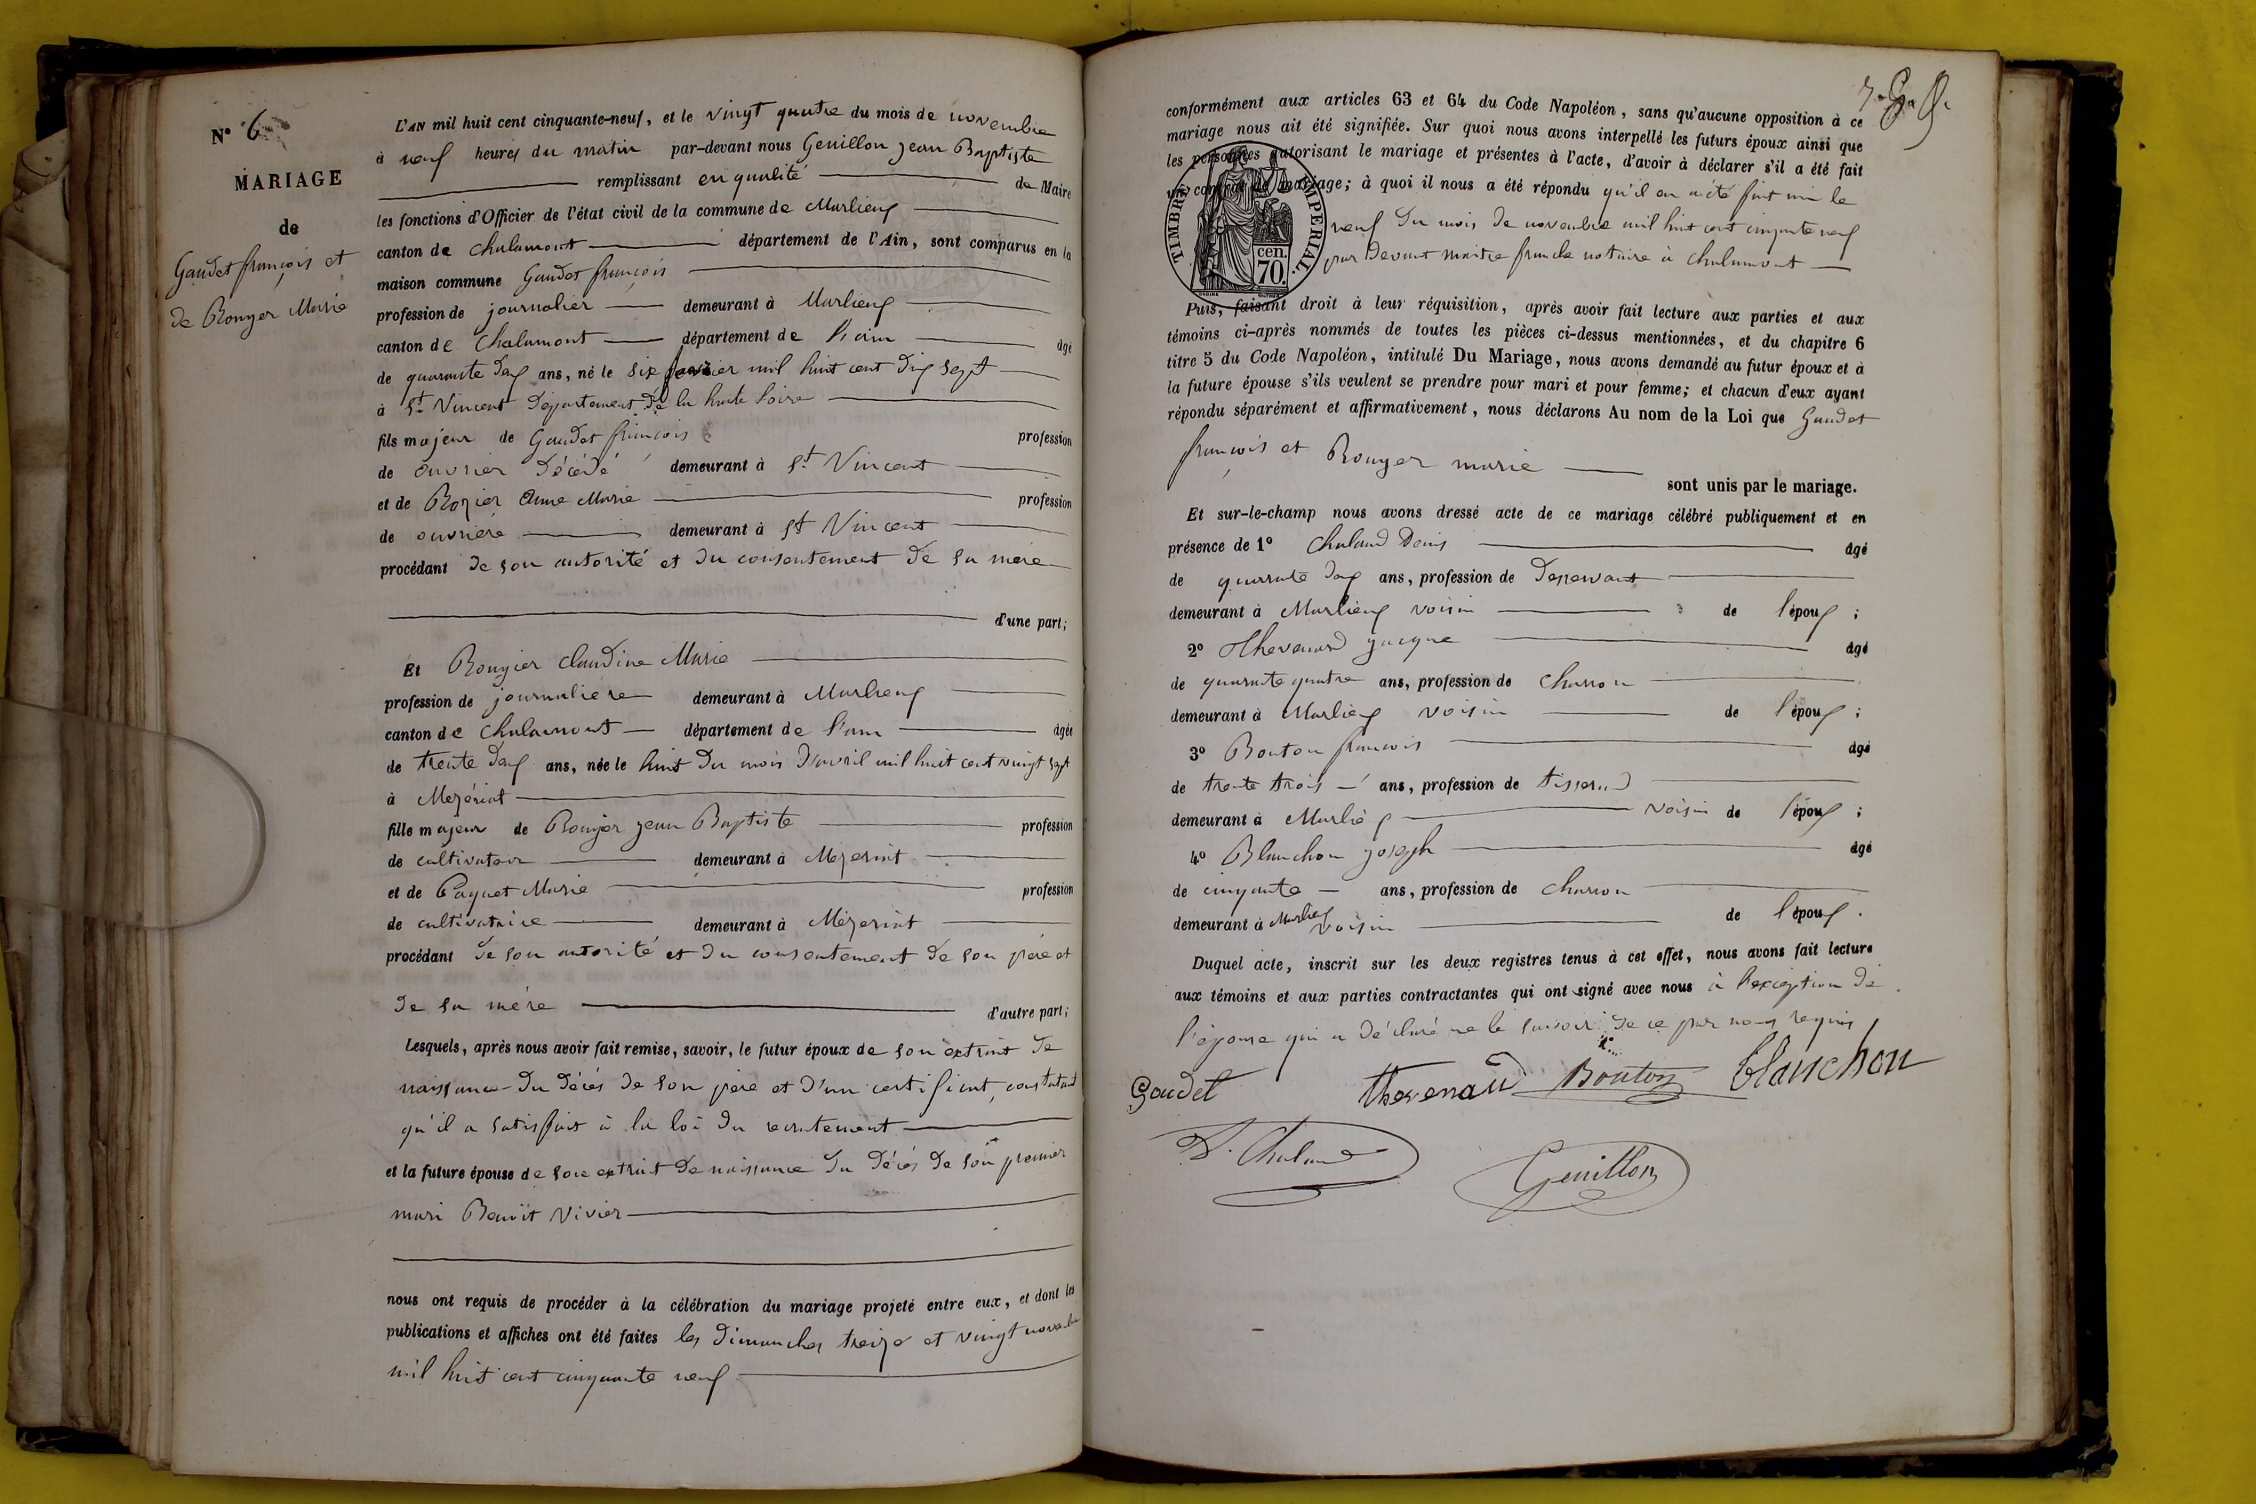 N° 6
MARIAGE
de
Gaudet françois et
de Rouger Marie
L'AN mil huit cent cinquante-neuf, et le vingt quatre du mois de novembre
à neuf heures du matin par-devant nous Genillon jean Baptiste
remplissant en qualité de Maire
les fonctions d'Officier de l'état civil de la commune de Marlieux
canton de Chalamont département de l'Ain, sont comparus en la
maison commune Gaudet françois
profession de journalier demeurant à Marlieux
canton de Chalamont département de l'ain âgé
de quarante deux ans, né le six mil huit cent dix sept
à St Vincent Département de la haute loire
fils majeur de Gaudet françois profession
de ouvrier Décédé demeurant à St Vincent
et de Rozier Anne Marie profession
de ouvriere demeurant à St Vincent
procédant de son autorité et du consentement de sa mère
d'une part;
Et Rougier Claudine Marie
profession de journaliere demeurant à Marlieux
canton de Chalamont département de l'ain âgée
de trente deux ans, née le huit du mois d'avril mil huit cent vingt sept
à Mezériat
fille majeur de Rouger jean Baptiste profession
de cultivateur demeurant à Mezeriat
et de Paquet Marie profession
de cultivatrice demeurant à Mézeriat
procédant de son autorité et du consentement de son père et
de sa mère d'autre part;
Lesquels, après nous avoir fait remise, savoir, le futur époux de son extrait de
naissance du décès de son père et d'un certificat, constatant
qu'il a satisfait à la loi du recrutement
et la future épouse de son extrait de naissance du décès de son premier
mari Benoit Vivier
nous ont requis de procéder à la célébration du mariage projeté entre eux, et dont les
publications et affiches ont été faites les dimanches treize et vingt novembre
mil huit cent cinquante neuf
conformément aux articles 63 et 64 du Code Napoléon, sans qu'aucune opposition à ce
mariage nous ait été signifiée. Sur quoi nous avons interpellé les futurs époux ainsi que
les personnes autorisant le mariage et présentes à l'acte, d'avoir à déclarer s'il a été fait
un contrat de mariage; à quoi il nous a été répondu qu'il en a été fait un le
neuf du mois de novembre mil huit cent cinquante neuf
par devant maitre notaire à Chalamont
TIMBRE IMPERIAL.
70 cen.
Puis, faisant droit à leur réquisition, après avoir fait lecture aux parties et aux
témoins ci-après nommés de toutes les pièces ci-dessus mentionnées, et du chapitre 6
titre 5 du Code Napoléon, intitulé Du Mariage, nous avons demandé au futur époux et à
la future épouse s'ils veulent se prendre pour mari et pour femme; et chacun d'eux ayant
répondu séparément et affirmativement, nous déclarons Au nom de la Loi que Gaudet
françois et Rouger marie
sont unis par le mariage.
Et sur-le-champ nous avons dressé acte de ce mariage célébré publiquement et en
présence de 1° Chaland Denis âgé
de quarante deux ans, profession de
demeurant à Marlieux voisin de l'époux;
2° Thevenard jacque âgé
de quarante quatre ans, profession de charron
demeurant à Marlieux voisin de l'époux;
3° Bouton françois âgé
de trente trois ans, profession de tisserand
demeurant à Marlieux voisin de l'époux;
4° Blanchon joseph âgé
de cinquante ans, profession de charron
demeurant à Marlieux voisin de l'époux.
Duquel acte, inscrit sur les deux registres tenus à cet effet, nous avons fait lecture
aux témoins et aux parties contractantes qui ont signé avec nous à l'exception de
l'épouse qui a déclaré ne le savoir de ce par nous requis
Gaudet Thevenard Bouton blanchon
D. Chaland Genillon